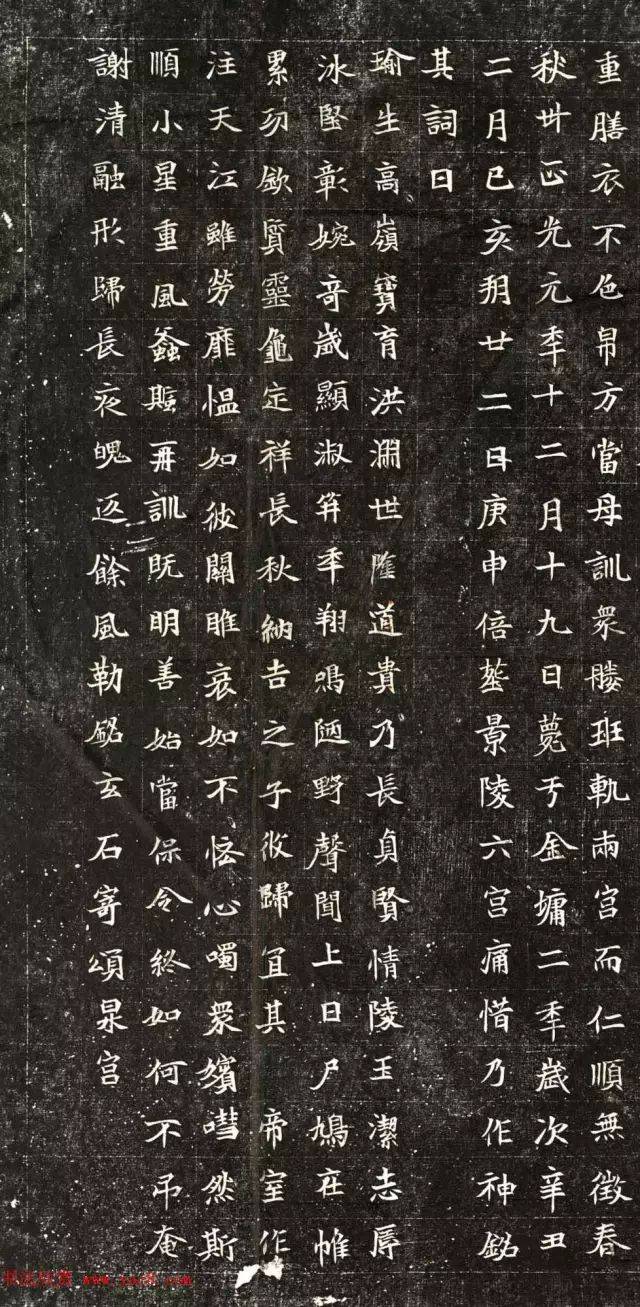 重膳衣不色帛方當母訓衆媵班軌兩宮而仁順無徵春
秋卅正光元年十二月十九日薨于金墉二年歲次辛丑
二月己亥朔廿二日庚申倍塟景陵六宮痛惜乃作神銘
其詞曰
瑜生高嶺寶育洪瀾世隆道貴乃長貞賢情陵玉潔志厚
冰堅彰婉奇歲顯淑笄年翔鳴陋野聲聞上日尸鳩在帷
累功欽質靈龜定祥長秋納吉之子攸歸宜其 帝室作
注天江雖勞靡愠如彼關雎哀如不恡心囑衆嬪嘒然斯
順小星重風螽斯再訓既明善始當保令終如何不弔奄
謝清融形歸長夜魄返餘風勒銘玄石寄頌泉宮